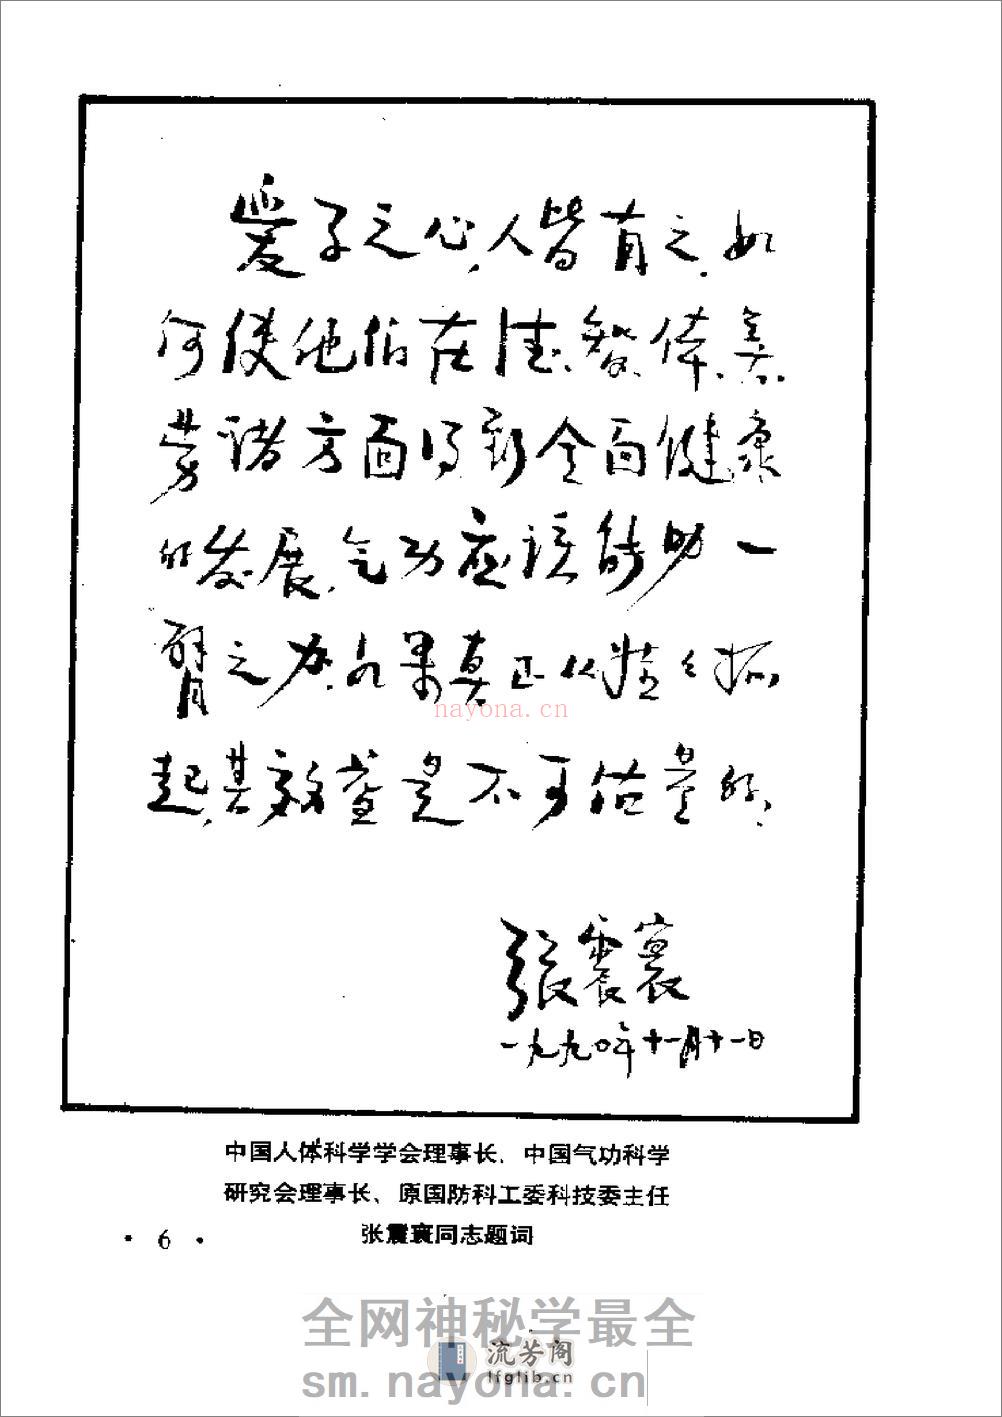 爱子之心,人皆有之.如
何使他们在德、智、体、美、
劳诸方面得到全面健康
的发展,气功应该能助一
臂之力.如果真正从娃娃抓
起,其效益是不可估量的.
张震寰
一九九〇年十一月十一日
中国人体科学学会理事长、中国气功科学
研究会理事长、原国防科工委科技委主任
张震寰同志题词
· 6 ·
nayona.cn
全网神秘学最全
流芳阁
lfglib.cn
sm.nayona.cn